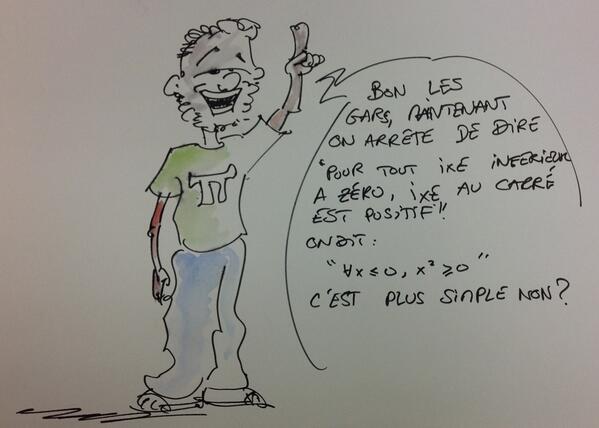 π
BON LES
GARS, MAINTENANT
ON ARRÊTE DE DIRE
"POUR TOUT IXE INFERIEUR
A ZÉRO, IXE AU CARRÉ
EST POSITIF"!
ON DIT :
"∀x≤0, x²≥0"
C'EST PLUS SIMPLE NON?